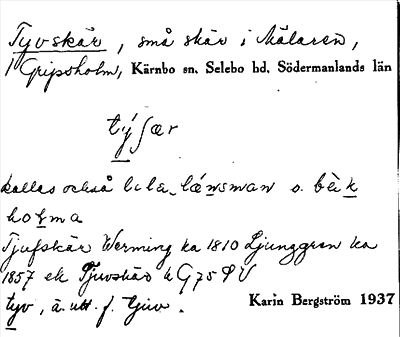 Tyvskär, små skär i Mälaren,
1 Gripsholm, Kärnbo sn. Selebo hd. Södermanlands län
tý ʃær
kallas också lilla länsman o. bèk
holma
Tjufskär Werming ka 1810 Ljunggren ka
1857 ek Tjuvskär G 75 SV
tyv, ä. utt. f. tjuv.
Karin Bergström 1937